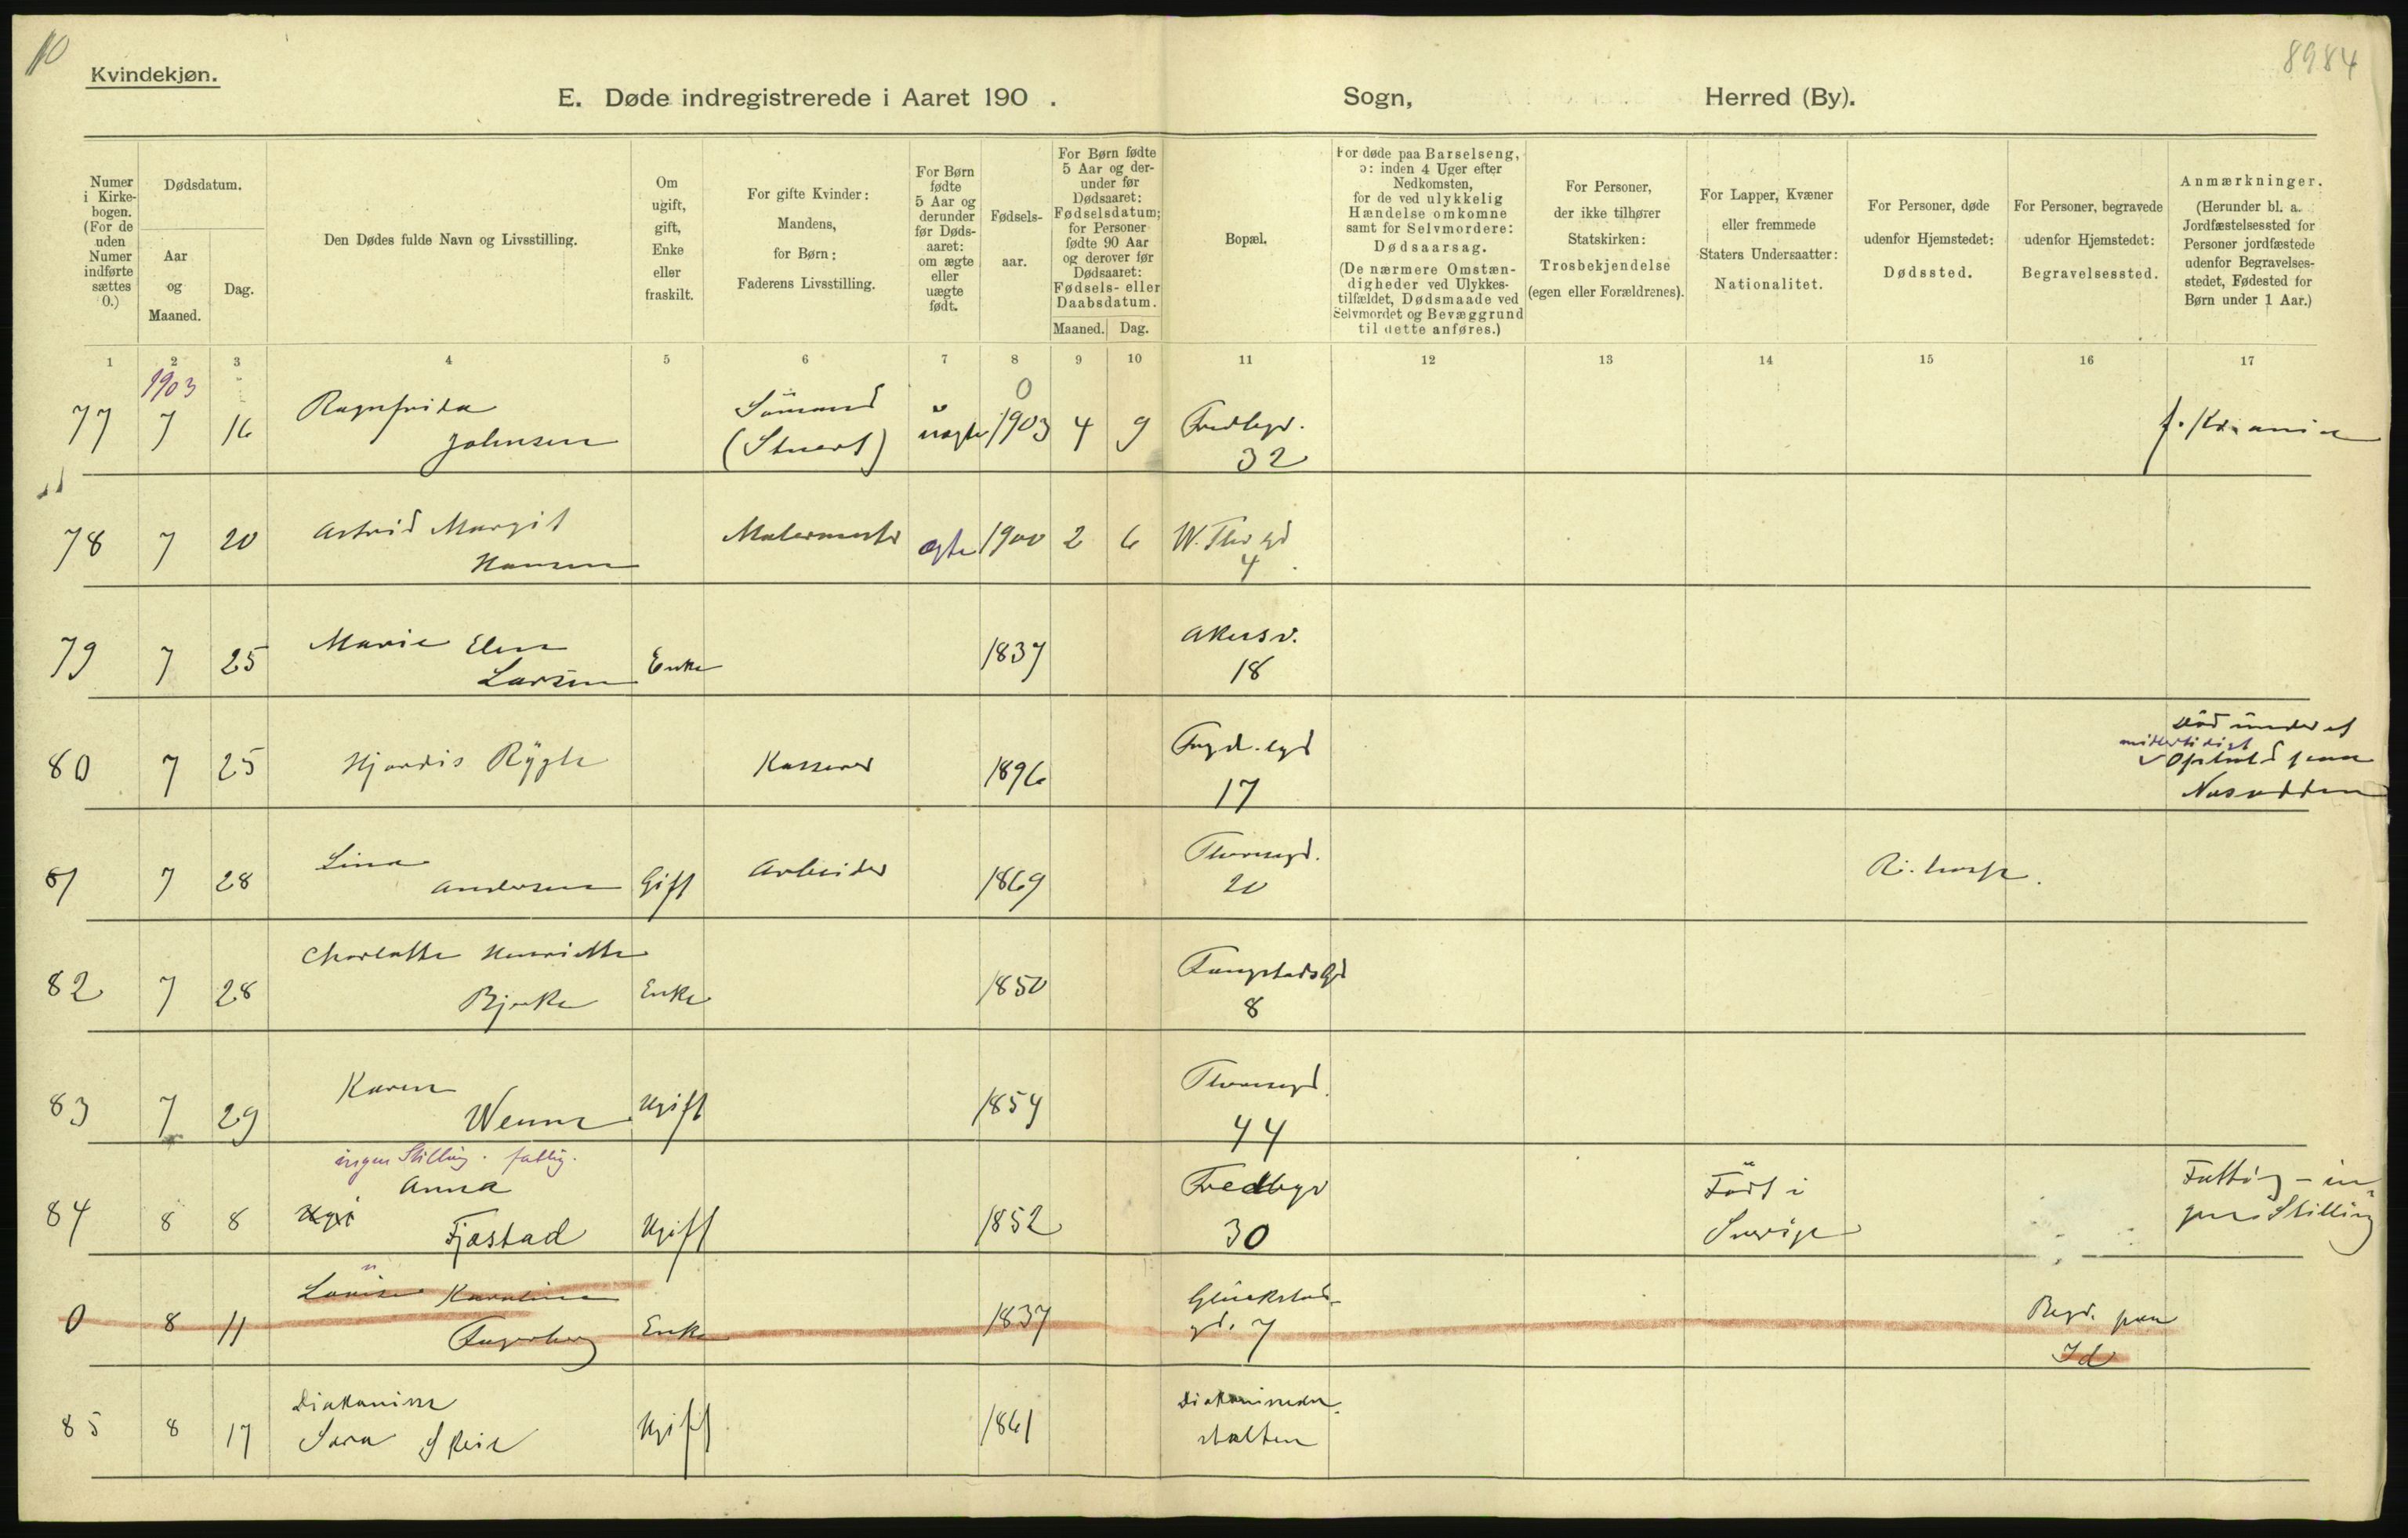 10
8984
Kvindekjøn.
E. Døde indregistrerede i Aaret 190 . Sogn, Herred (By).
Numer i Kirkebogen. (For de uden Numer indførte sættes 0.)
Dødsdatum.
Aar og Maaned.
Dag.
Den Dødes fulde Navn og Livsstilling.
Om ugift, gift, Enke eller fraskilt.
For gifte Kvinder: Mandens, for Børn: Faderens Livsstilling.
For Børn fødte 5 Aar og derunder før Dødsaaret: om ægte eller uægte født.
Fødselsaar.
For Børn fødte 5 Aar og derunder før Dødsaaret: Fødselsdatum; for Personer fødte 90 Aar og derover før Dødsaaret: Fødsels- eller Daabsdatum.
Maaned. Dag.
Bopæl.
For døde paa Barselseng, ɔ: inden 4 Uger efter Nedkomsten, for de ved ulykkelig Hændelse omkomne samt for Selvmordere: Dødsaarsag. (De nærmere Omstændigheder ved Ulykkestilfældet, Dødsmaade ved Selvmordet og Bevæggrund til dette anføres.)
For Personer, der ikke tilhører Statskirken: Trosbekjendelse (egen eller Forældrenes).
For Lapper, Kvæner eller fremmede Staters Undersaatter: Nationalitet.
For Personer, døde udenfor Hjemstedet: Dødssted.
For Personer, begravede udenfor Hjemstedet: Begravelsessted.
Anmærkninger. (Herunder bl. a. Jordfæstelsessted for Personer jordfæstede udenfor Begravelsesstedet, Fødested for Børn under 1 Aar.)
1 2 3 4 5 6 7 8 9 10 11 12 13 14 15 16 17
1903 0
77 7 16 Ragnfrida Johnsen Sömand (Stuert) uægte 1903 4 9 Fredbgd. 32 f. Kr.ania
78 7 20 Astrid Margit Hansen Malermester ægte 1900 2 6 W. Thr gd 4
79 7 25 Marie Elen Larsen Enke 1837 Akersv. 18
80 7 25 Hjørdis Rygh Kasserer 1896 17 Död under et midlertidigt Ophold paa Nesodden
81 7 28 Lina Andersen Gift Arbeider 1869 Thorsgd. 20 Ri. hosp.
82 7 28 Charlotte Henriette Bjerke Enke 1850 8
83 7 29 Karen Wenne Ugift 1854 Thorsgd. 44
ingen Stilling. fattig.
84 8 8 Ugi Anna Fjæstad Ugift 1852 Fredbgd 30 Født i Sverige Fattig - ingen Stilling
0 8 11 Lovise Karoline Fagerberg Enke 1837 Glückstadgd. 7 Begr. paa Id
85 8 17 Diakonisse Sara Skeie Ugift 1861 Diakonissean stalten